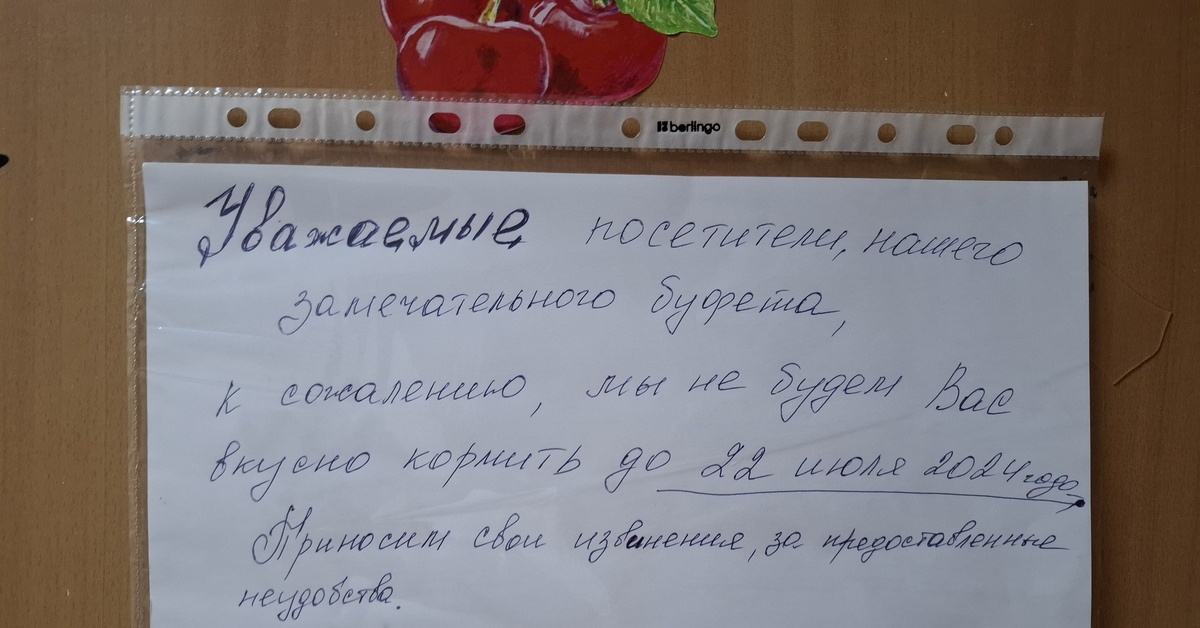 berlingo
Уважаемые посетители, нашего
замечательного буфета,
к сожалению, мы не будем Вас
вкусно кормить до 22 июля 2024 года.
Приносим свои извинения, за предоставленные
неудобства.